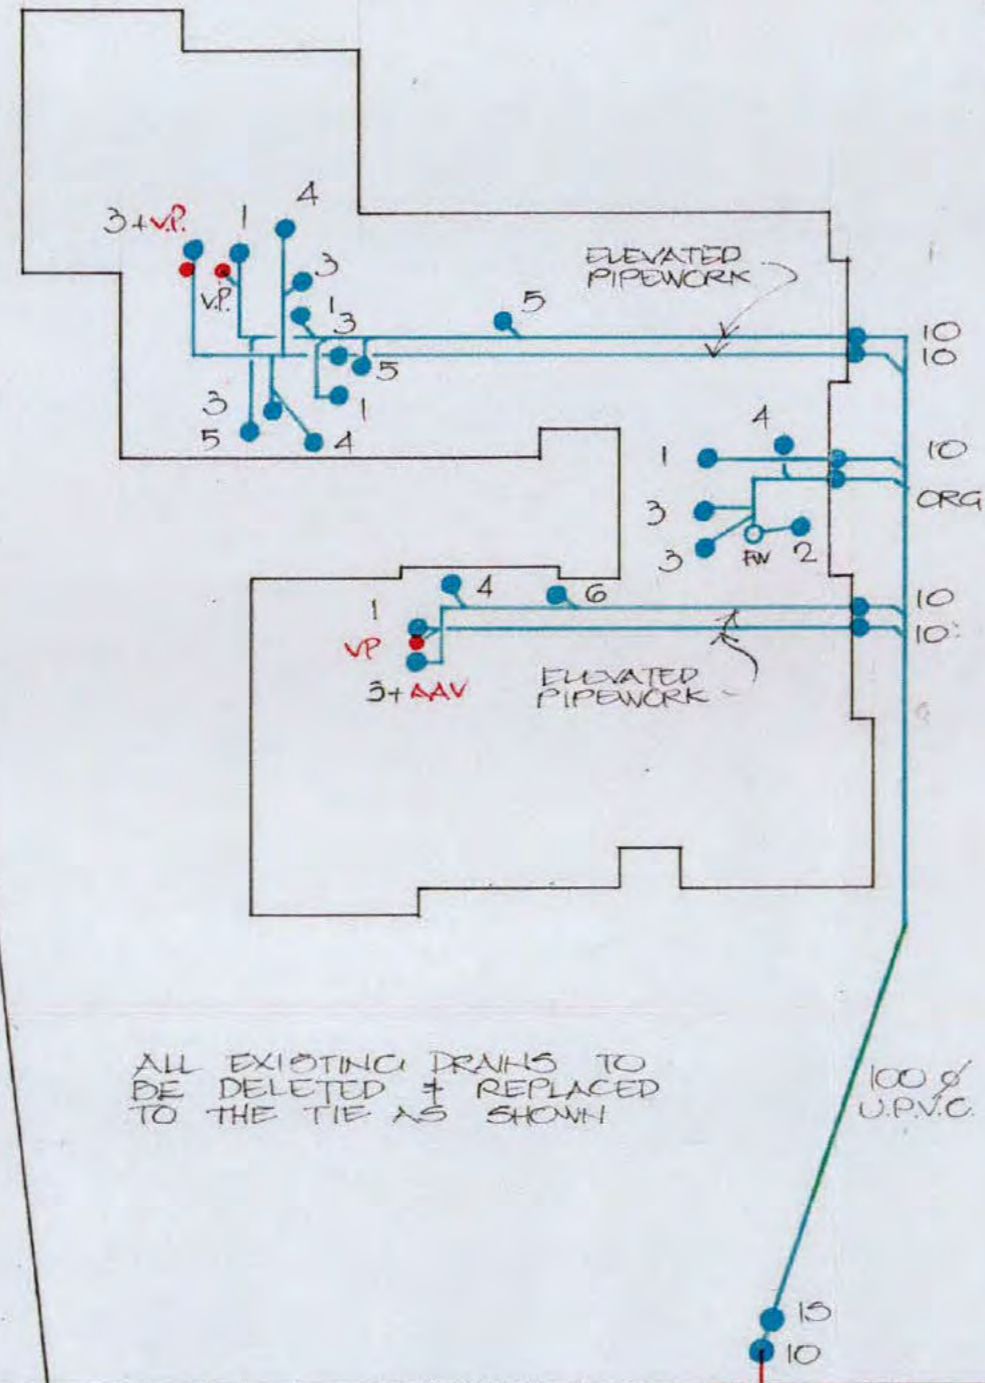 3+V.P.
1
4
V.P.
3
1
3
5
5
1
3
5
4
ELEVATED
PIPEWORK
10
10
4
1
10
ORG
3
3
FW
2
4
6
1
VP
3+AAV
10
10
ELEVATED
PIPEWORK
ALL EXISTING DRAINS TO
BE DELETED & REPLACED
TO THE TIE AS SHOWN
100 Ø
U.P.V.C.
15
10